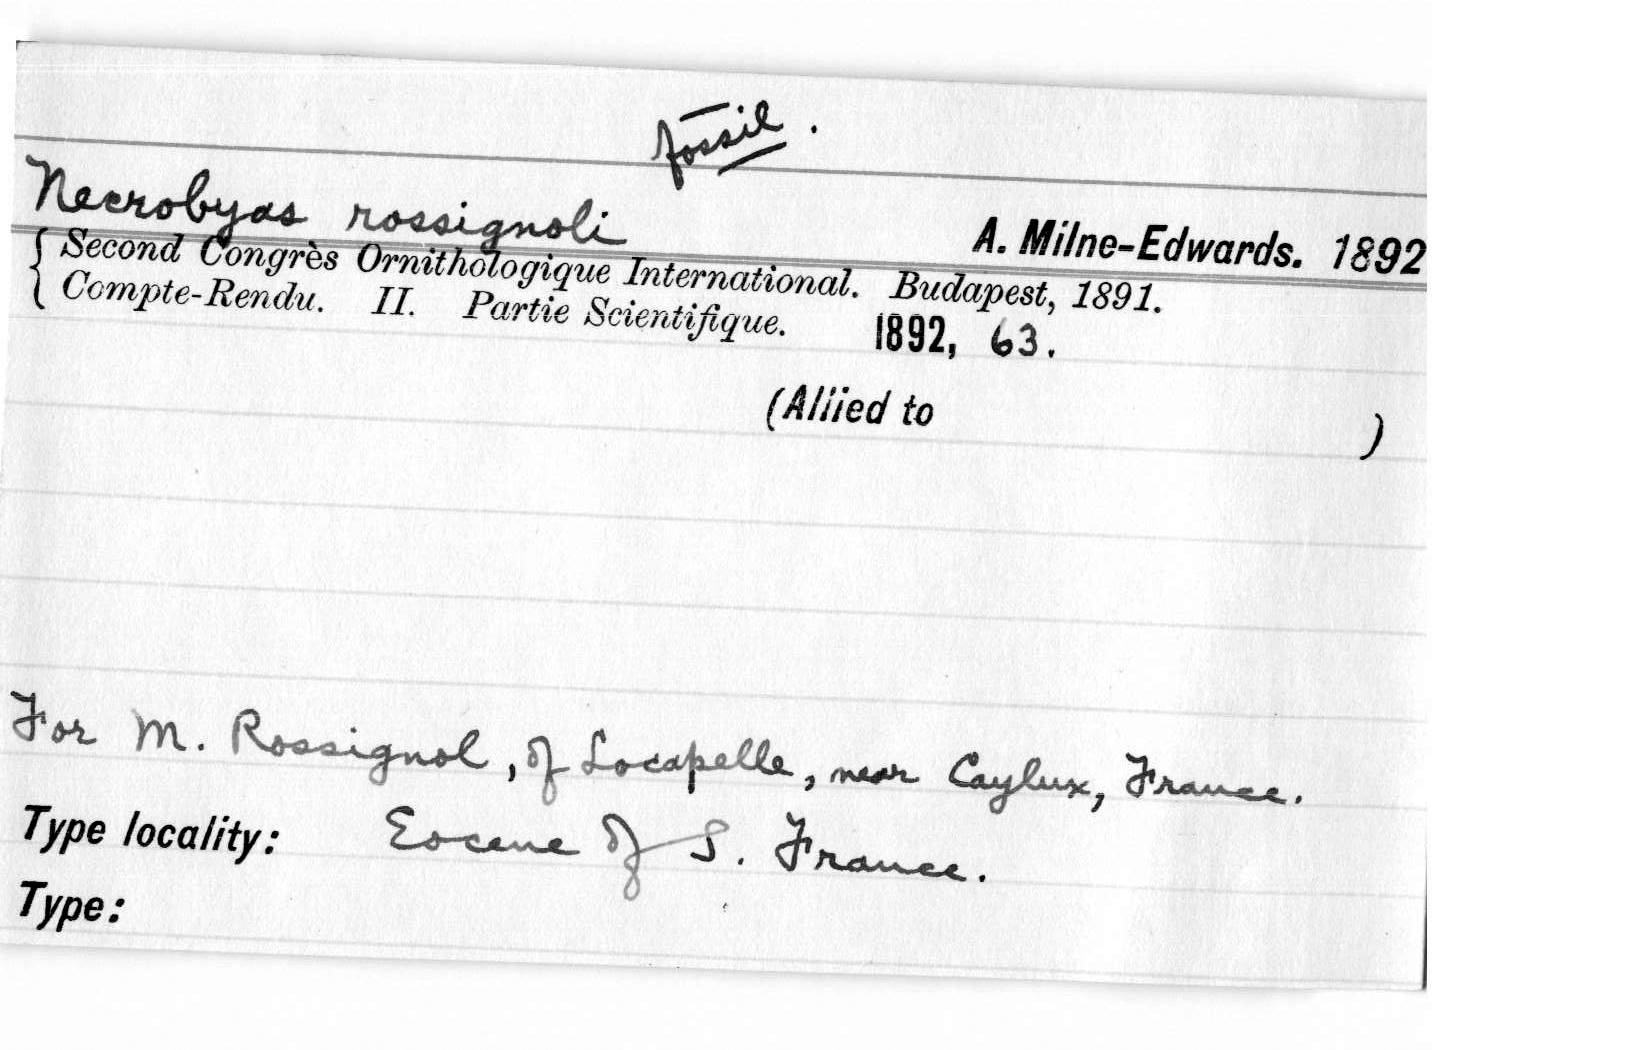 fossil.
Necrobyas rossignoli A. Milne-Edwards. 1892
Second Congrès Ornithologique International. Budapest, 1891.
Compte-Rendu. II. Partie Scientifique. 1892, 63.
(Allied to )
For M. Rossignol, of Locapelle, near Caylux, France.
Type locality: Eocene of S. France.
Type: